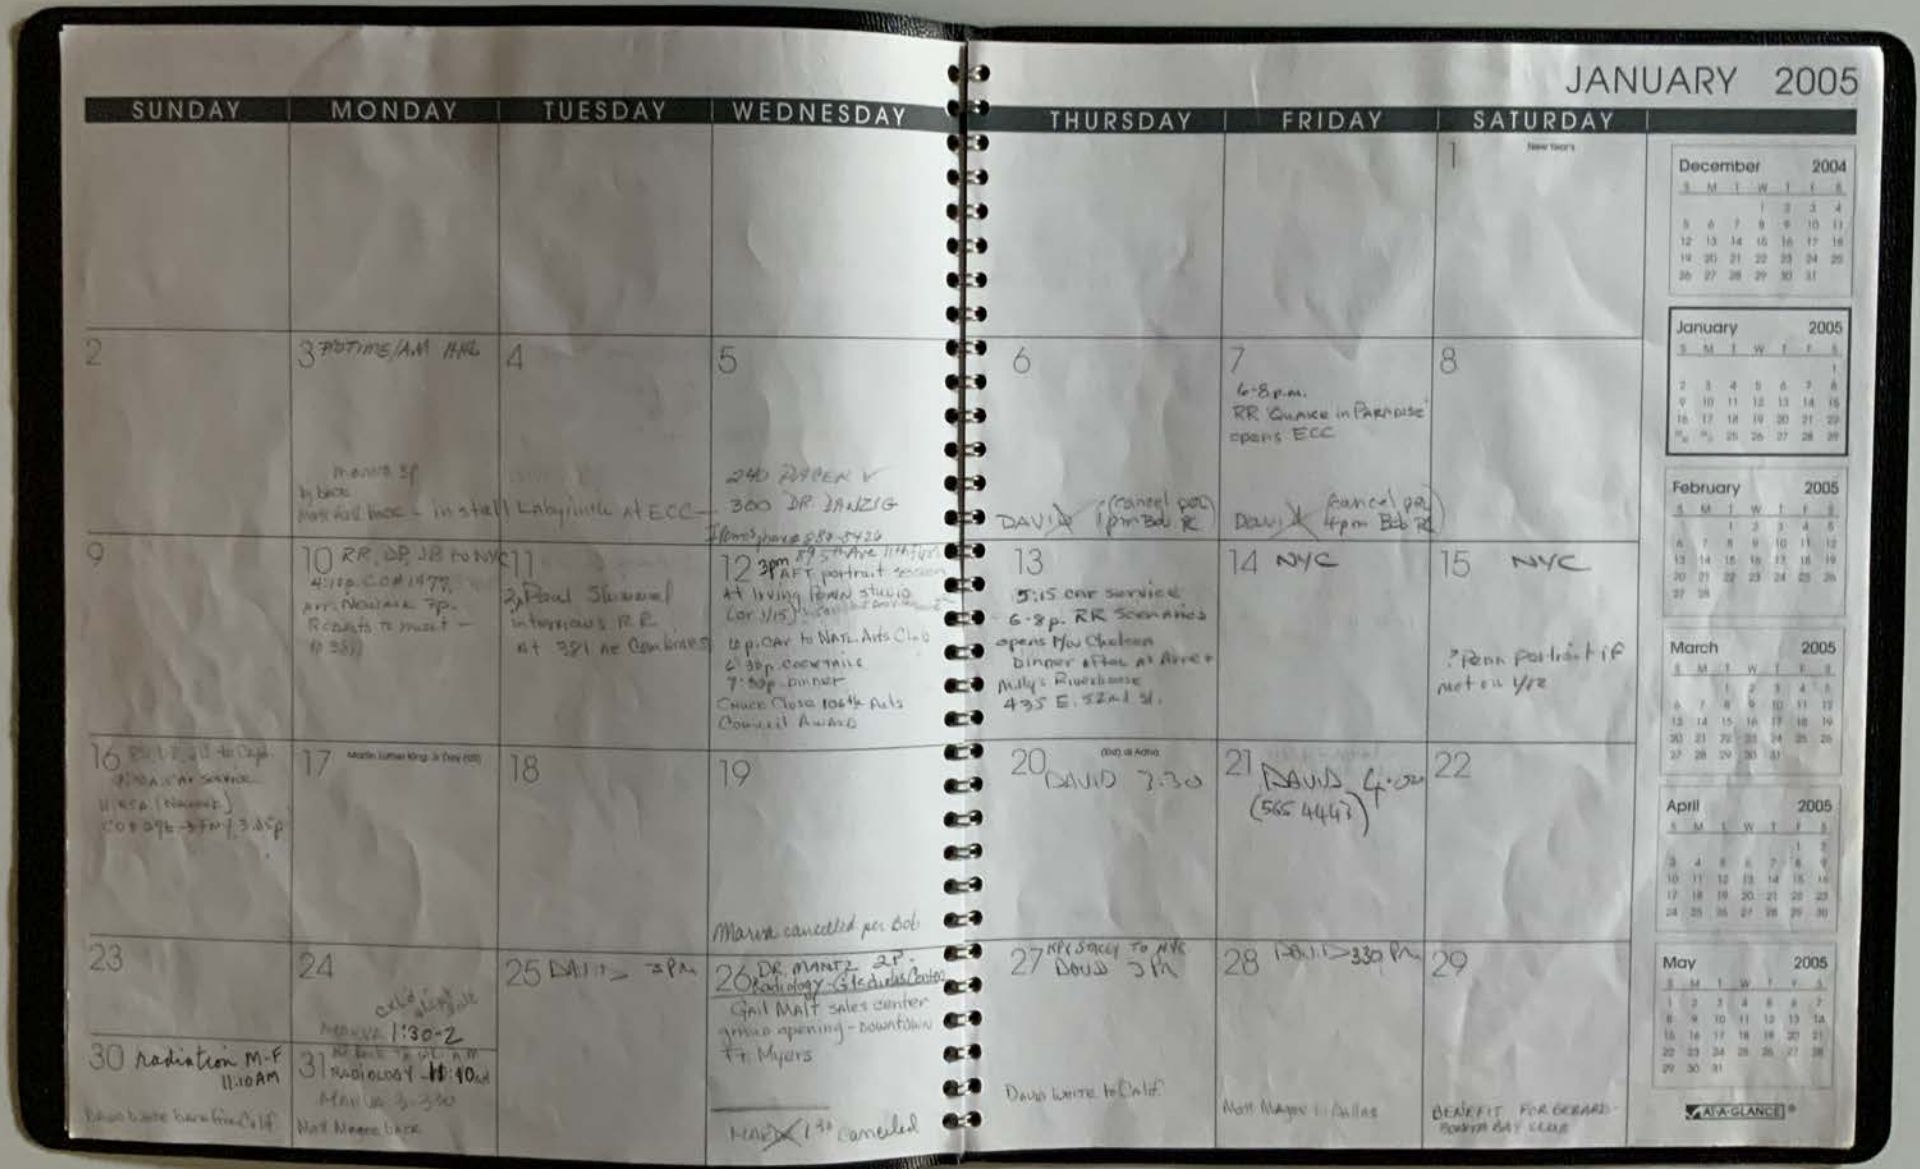 JANUARY 2005
SUNDAY MONDAY TUESDAY WEDNESDAY THURSDAY FRIDAY SATURDAY
1 New Year's
2
3
Marva 3p
install Labyrinth at ECC
4
5
240
300 DR DANZIG
6
DAVID (cancel per
1pm Bob R
7
6-8 p.m.
RR 'Quake in Paradise'
opens ECC
David (cancel per
4pm Bob R
8
9
10 RR, DP, JB to NYC
4:10p. CO# 1477
arr. Newark 7p.
11
Paul
interviews RR
at 381 re Combines
12 3pm 89 5th Ave 11th
AFT portrait session
At Irving Penn studio
(or 1/15)
6p. car to Natl. Arts Club
6:30p. cocktails
7:30p. dinner
Chuck Close Arts
Council Award
13
5:15 car service
6-8p. RR Scenarios
opens P/W Chelsea
Dinner after at
435 E. 52nd St.
14 NYC
15 NYC
? Penn portrait if
not on 1/12
16
car service
(Newark)
17 Martin Luther King Jr Day
18
19
Marva cancelled per Bob
20
DAVID 3:30
21 DAVID 4:00
(565 4443)
22
23
24
Marva 1:30-2
25 DAVID 3PM
26 DR. MANTZ 2P.
Radiology
sales center
group opening - downtown
Ft Myers
1 30 canceled
27 to NYC
DAVID 3 PM
David White to Calif.
28 DAVID 330 PM
29
BENEFIT FOR GERARD-
BONITA BAY CLUB
30 radiation M-F
11:10 AM
David White back from Calif.
31
RADIOLOGY
Marva 3-330
Matt Magee back
December 2004
S M T W T F S
1 2 3 4
5 6 7 8 9 10 11
12 13 14 15 16 17 18
19 20 21 22 23 24 25
26 27 28 29 30 31
January 2005
S M T W T F S
1
2 3 4 5 6 7 8
9 10 11 12 13 14 15
16 17 18 19 20 21 22
25 26 27 28 29
February 2005
S M T W T F S
1 2 3 4 5
6 7 8 9 10 11 12
13 14 15 16 17 18 19
20 21 22 23 24 25 26
27 28
March 2005
S M T W T F S
1 2 3 4 5
6 7 8 9 10 11 12
13 14 15 16 17 18 19
20 21 22 23 24 25 26
27 28 29 30 31
April 2005
S M T W T F S
1 2
3 4 5 6 7 8 9
10 11 12 13 14 15 16
17 18 19 20 21 22 23
24 25 26 27 28 29 30
May 2005
S M T W T F S
1 2 3 4 5 6 7
8 9 10 11 12 13 14
15 16 17 18 19 20 21
22 23 24 25 26 27 28
29 30 31
AT-A-GLANCE®